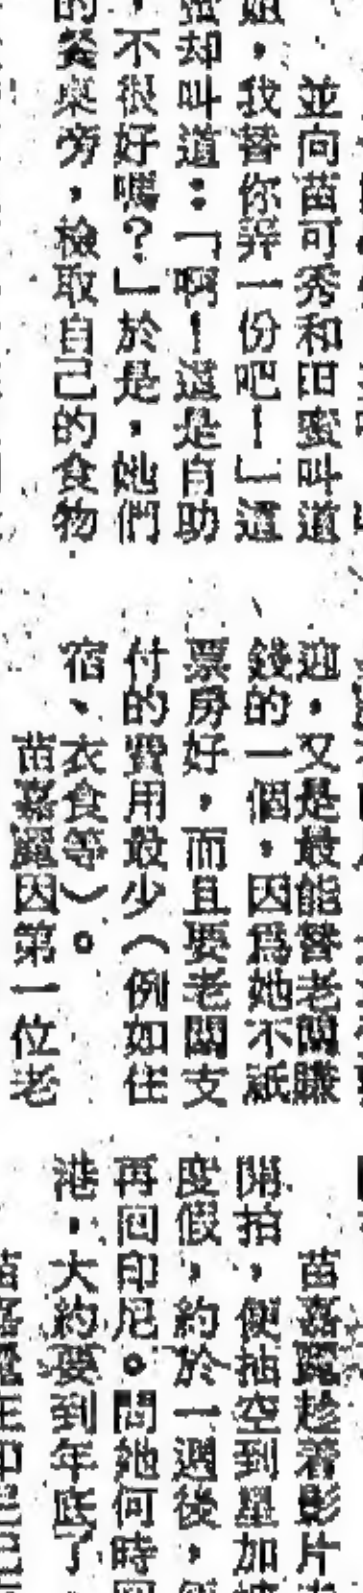 並向苗可秀和田蜜叫道
姐，我替你弄一份吧！」這
蜜却叫道：「啊！這是自助
，不很好嗎？」於是，她們
的餐桌旁，檢取自己的食物
迎，又是最能替老闆賺
錢的一個，因爲她不祇
票房好，而且要老闆支
付的費用最少（例如住
宿、衣食等）。
苗嘉麗因第一位老
苗嘉麗趁着影片
開拍，便抽空到星加
度假，約於一週後，
再回印尼。問她何時
港，大約要到年底了